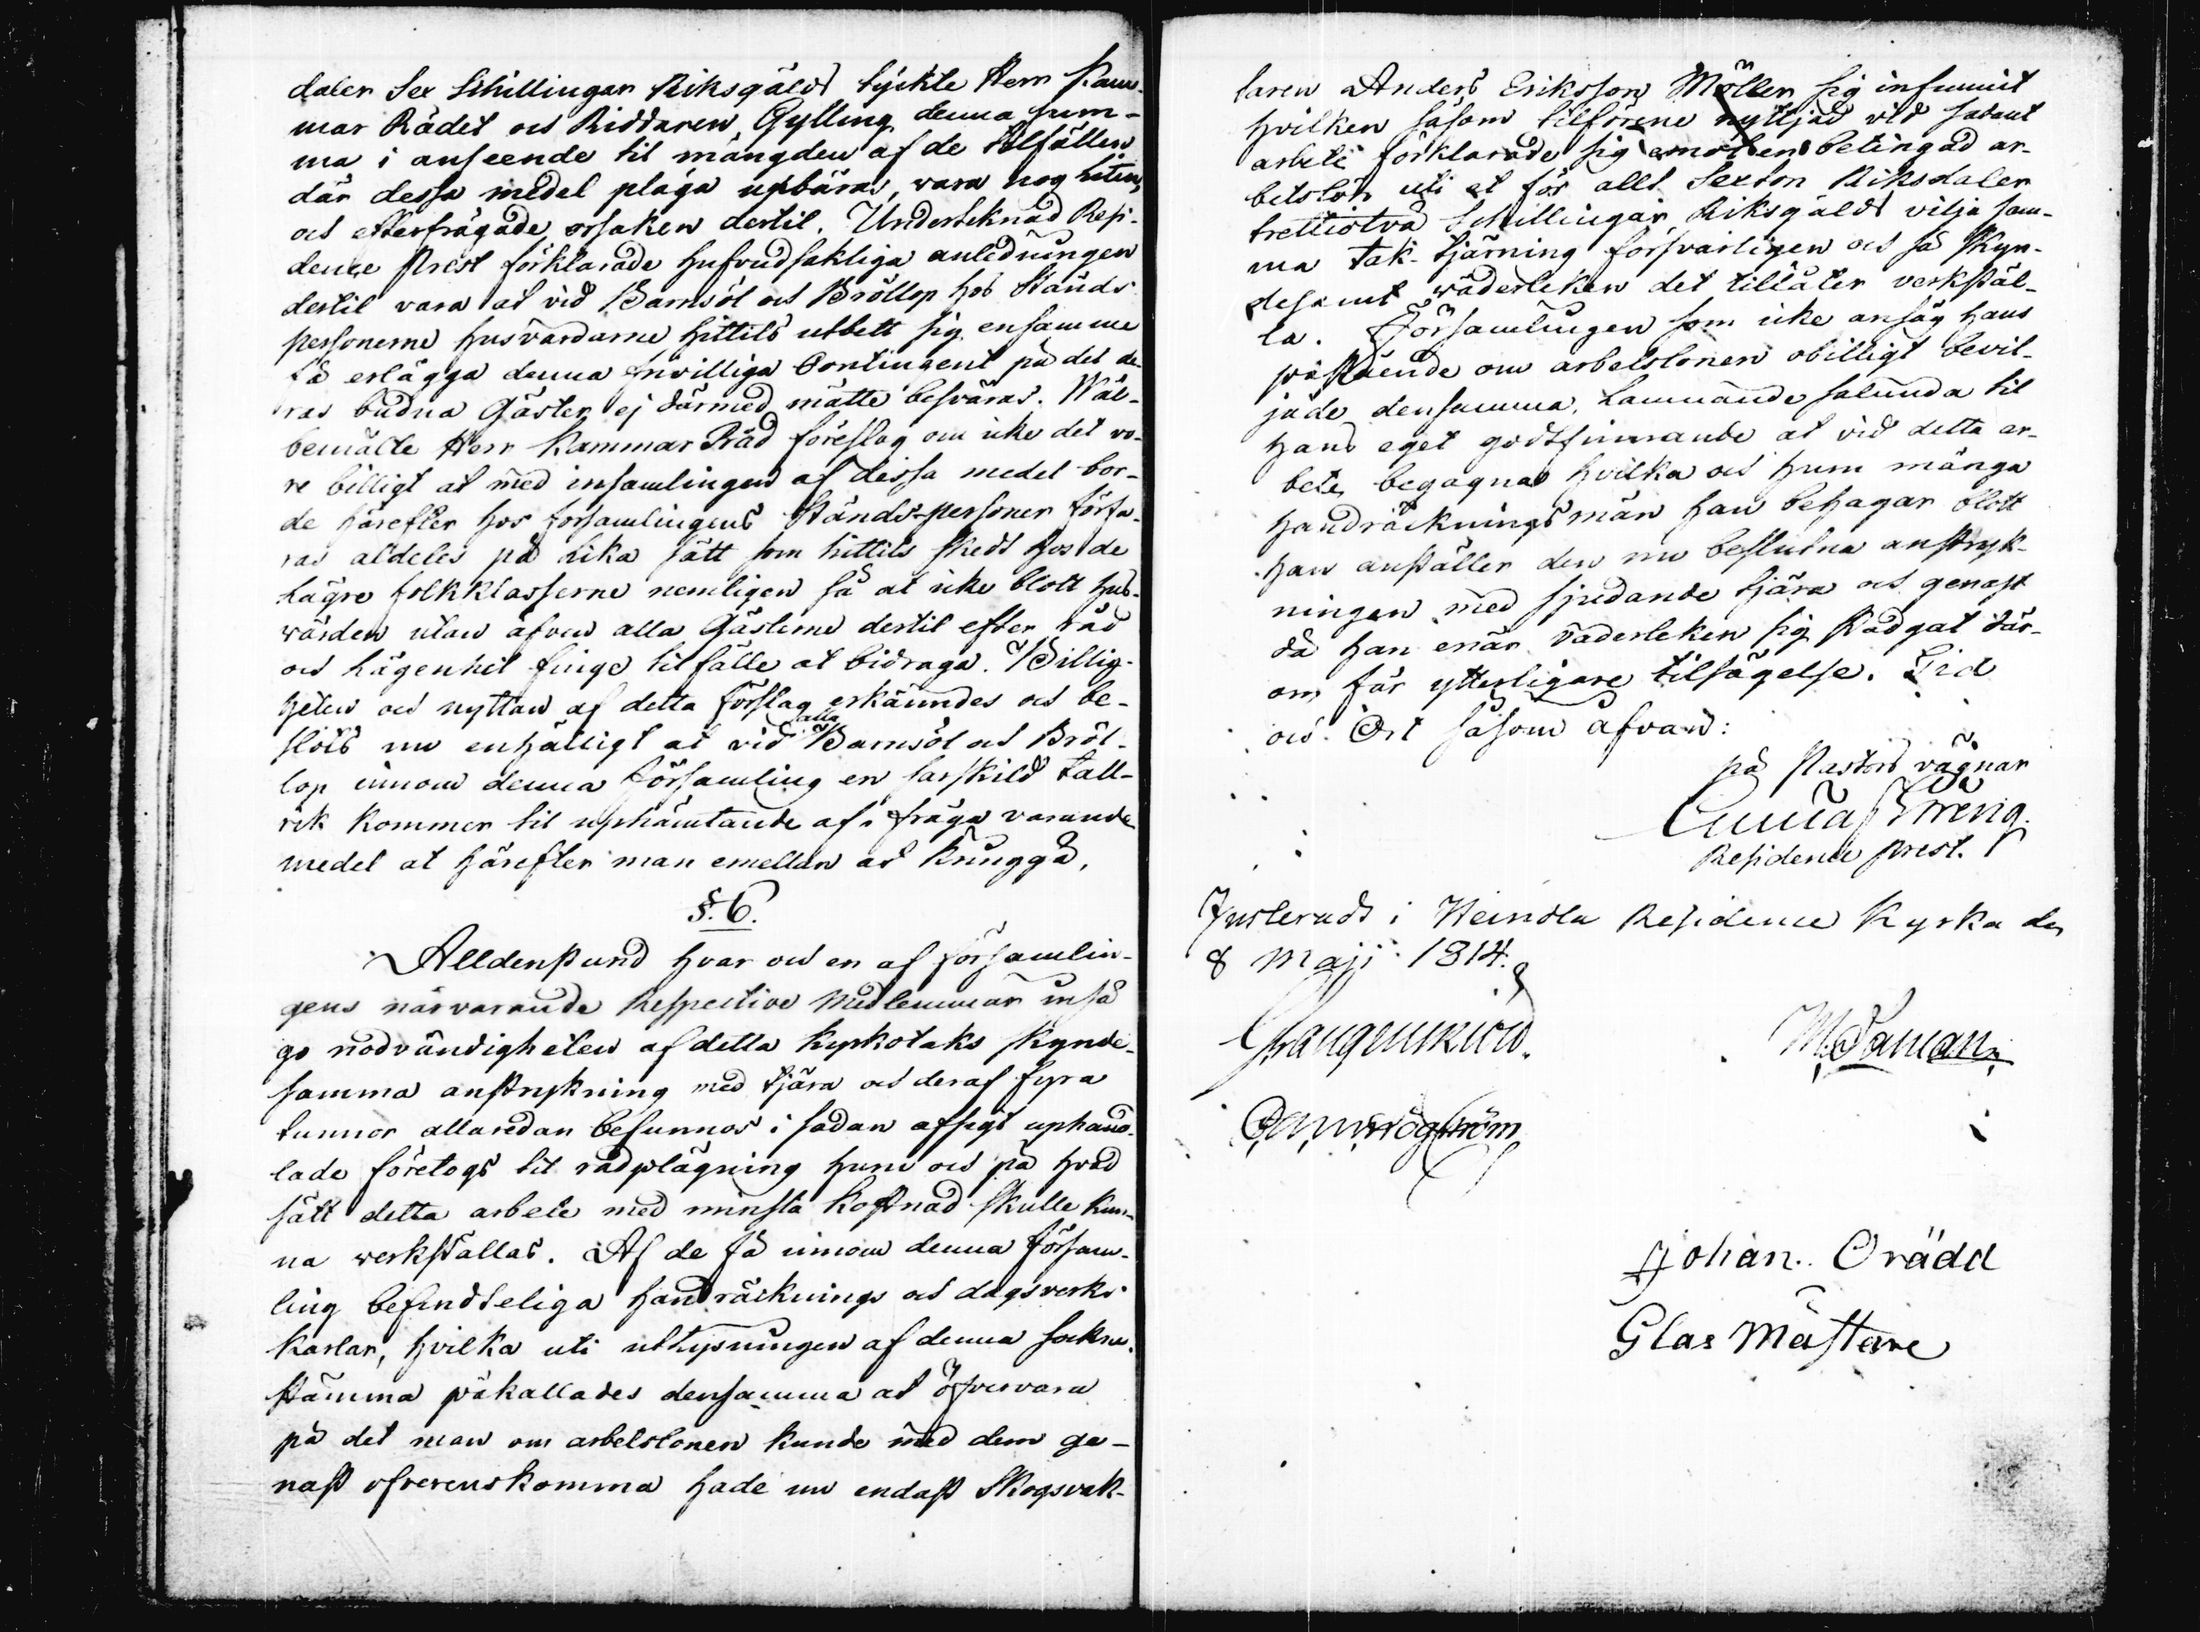 daler Sex Schillingar Riksgälds tyckte Herr Kam-
mar Rådet och Riddaren Gylling denna sum-
ma i anseende til mängden af de tilfällen
där dessa medel pläga upbäras, vara nog liten,
och efterfrågade orsaken dertil. Undertecknad Resi-
dence Prest förklarade hufvudsakliga anledningen
dertil vara at vid Barnsöl och Bröllop hos Stånds
personerne husvärdarne hittils utbett sig ensamme
få erlägga denna frivilliga Contingent på det de-
ras budna Gäster ej därmed måtte besväras. Wäl-
bemälte Herr Kammar Råd föreslog om icke det vo-
re billigt at med insamlingen af dessa medel bor-
de härefter hos församlingens Stånds-personer förfa-
ras aldeles på lika sätt som hittils skedt hos de
lägre folkklasserne nemligen så at icke blott hus-
värden utan äfven alla Gästerne dertil efter råd
och lägenhet finge tilfälle at bidraga. Billig-
heten och nyttan af detta förslag erkändes och be-
slöts nu enhälligt at vid alla Barnsöl och Bröl-
lop innom denna församling en särskild tall-
rik kommer til uphämtande af i fråga varande
medel at härefter man emellan at kringgå.
§. 6.
Alldenstund hvar och en af församlin-
gens närvarande Respective Medlemmar inså-
go nödvändigheten af detta kyrkotaks skynde-
samma anstrykning med tjära och deraf fyra
tunnor allaredan befunnos i sådan afsigt uphand-
lade företogs til rådplägning huru och på hvad
sätt detta arbete med minsta kostnad skulle kun-
na verkställas. Af de få innom denna försam-
ling befindteliga handräcknings och dagsverks
karlar, hvilka uti utlysningen af denna sockne-
stämma påkallades densamma at öfvervara
på det man om arbetslönen kunde med dem ge-
nast öfverenskomma hade nu endast Skogsvak-
taren Anders Eriksson Möller sig infunnit
hvilken såsom tilförene nyttjad vid sådant
arbete förklarade sig emot en betingad ar-
betslön uti et för allt Sexton Riksdaler
trettiotvå Schillingar Riksgälds vilja sam-
ma tak-tjärning försvarligen och så skyn-
desamt väderleken det tillåter verkstäl-
la. Församlingen som icke ansåg hans
påstående om arbetslönen obilligt bevil-
jade densamma, lämnande sålunda til
hans eget godtfinnande at vid detta ar-
bete begagna hvilka och huru många
handräcknings män han behagar blott
han anställer den nu beslutna anstryk-
ningen med sjudande tjära och genast
då han enär väderleken sig stadgat där-
om får ytterligare tilsägelse. Tid
och Ort såsom åfvan:
på Pastors vägnar
Residence Prest.
Justerads i Heinola Residence Kyrka den
8 Maji 1814.
Johan Orädd
Glas Mästare